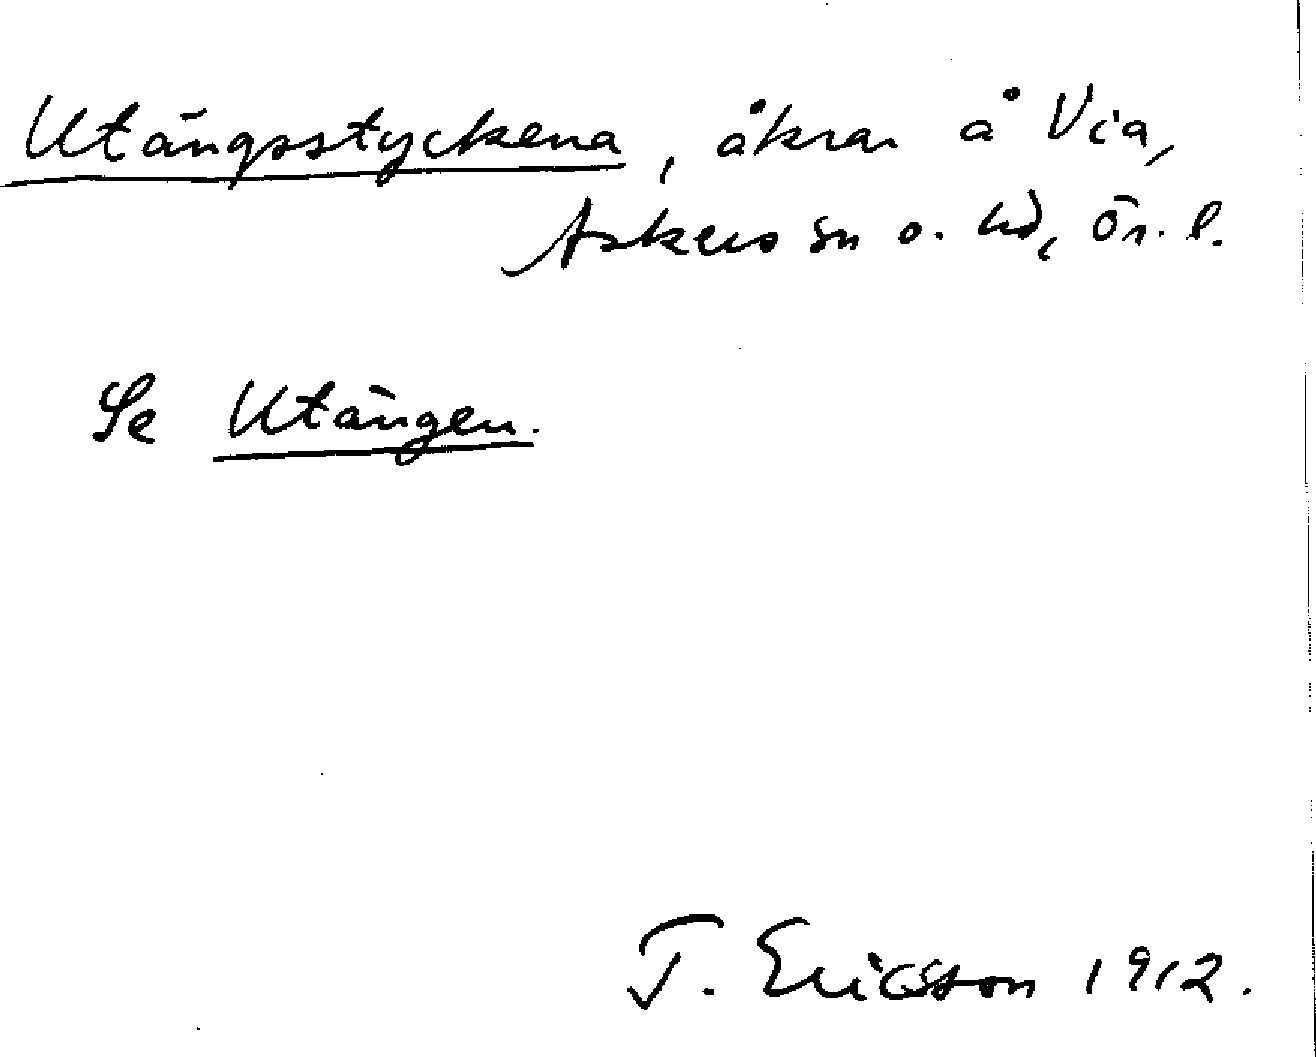 Utängsstyckena, åkrar å Via,
Askers sn o. hd, Ör. l.
Se Utängen.
T. Ericsson 1912.